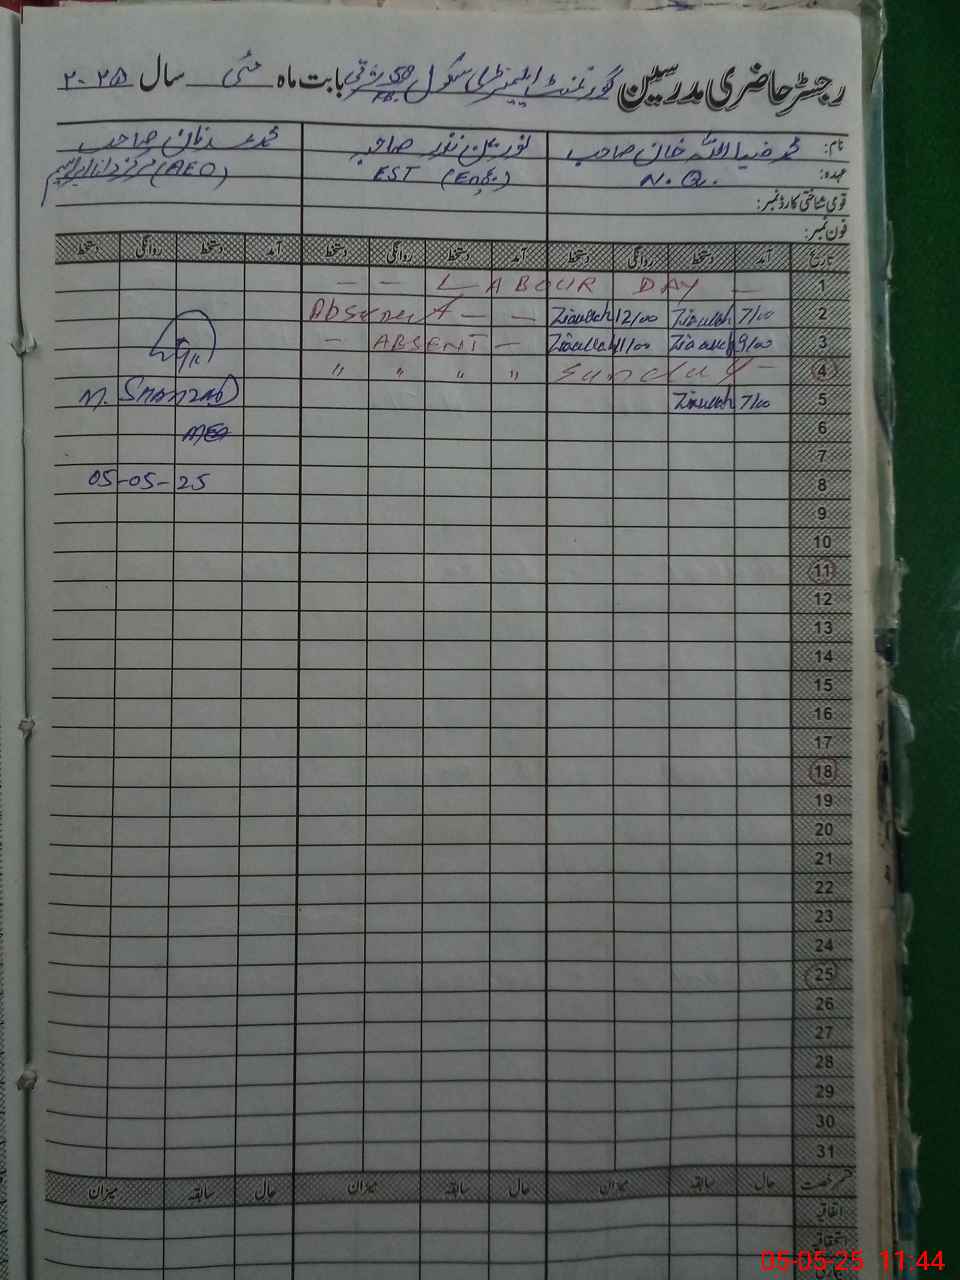 رجسٹر حاضری مدرسین گورنمنٹ ایلیمنٹری سکول 58 شرقی بابت ماہ مئی سال ۲۰۲۵
نام: محمد ضیاء اللہ خان صاحب نورین نذر صاحبہ محمد عدنان صاحب
عہدہ: N.Q. EST (Eng.) (AEO) مرکز دانا ابراہیم
قومی شناختی کارڈ نمبر:
فون نمبر:
تاریخ آمد دستخط روانگی دستخط آمد دستخط روانگی دستخط آمد دستخط روانگی دستخط
1 — — LABOUR DAY —
2 Absent — — Ziaullah 12/00 Ziaullah 7/00
3 — ABSENT — Ziaullah 11/00 Ziaullah 9/00
4 " " " " Sunday —
5 Ziaullah 7/00 M. Shahzad
6 MEA
7
8 05-05-25
9
10
11
12
13
14
15
16
17
18
19
20
21
22
23
24
25
26
27
28
29
30
31
قسم رخصت حال سابقہ میزان حال سابقہ میزان حال سابقہ میزان
اتفاقیہ
استحقاقیہ
05-05-25 11:44